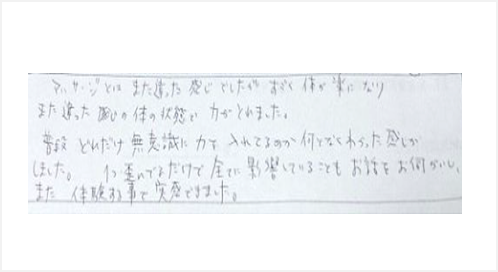 マッサージとは また違った 感じでしたが すごく 体が 楽に なり
また違った 体の状態で 力がとれました。
普段 どれだけ 無意識に 力を 入れてるのか 何となくわかった 感じが
しました。 1つ 歪んでるだけで 全てに 影響していることも お話を お伺いし、
また 体験する事で 実感できました。